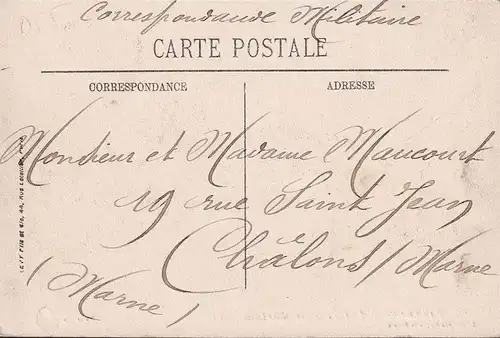 Correspondance Militaire
CARTE POSTALE
CORRESPONDANCE
ADRESSE
Monsieur et Madame Maucourt
19 rue Saint Jean
Châlons s/ Marne
(Marne)